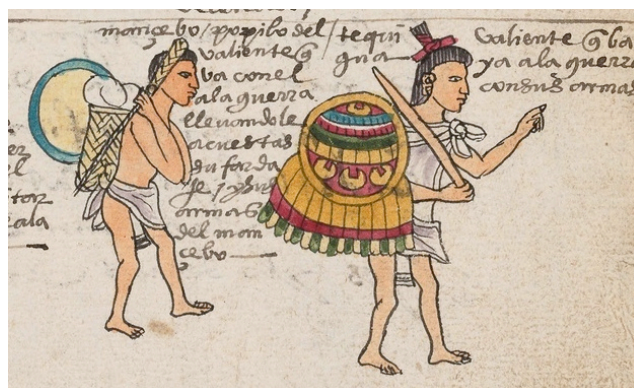 mançebo / popilo del
valiente q
va con el
a la guerra
llevandole
acuestas
su farda
je, y sus
armas
del man
çebo
tequi
gua
valiente q ba
ya a la guerra
con sus armas
tar
ala